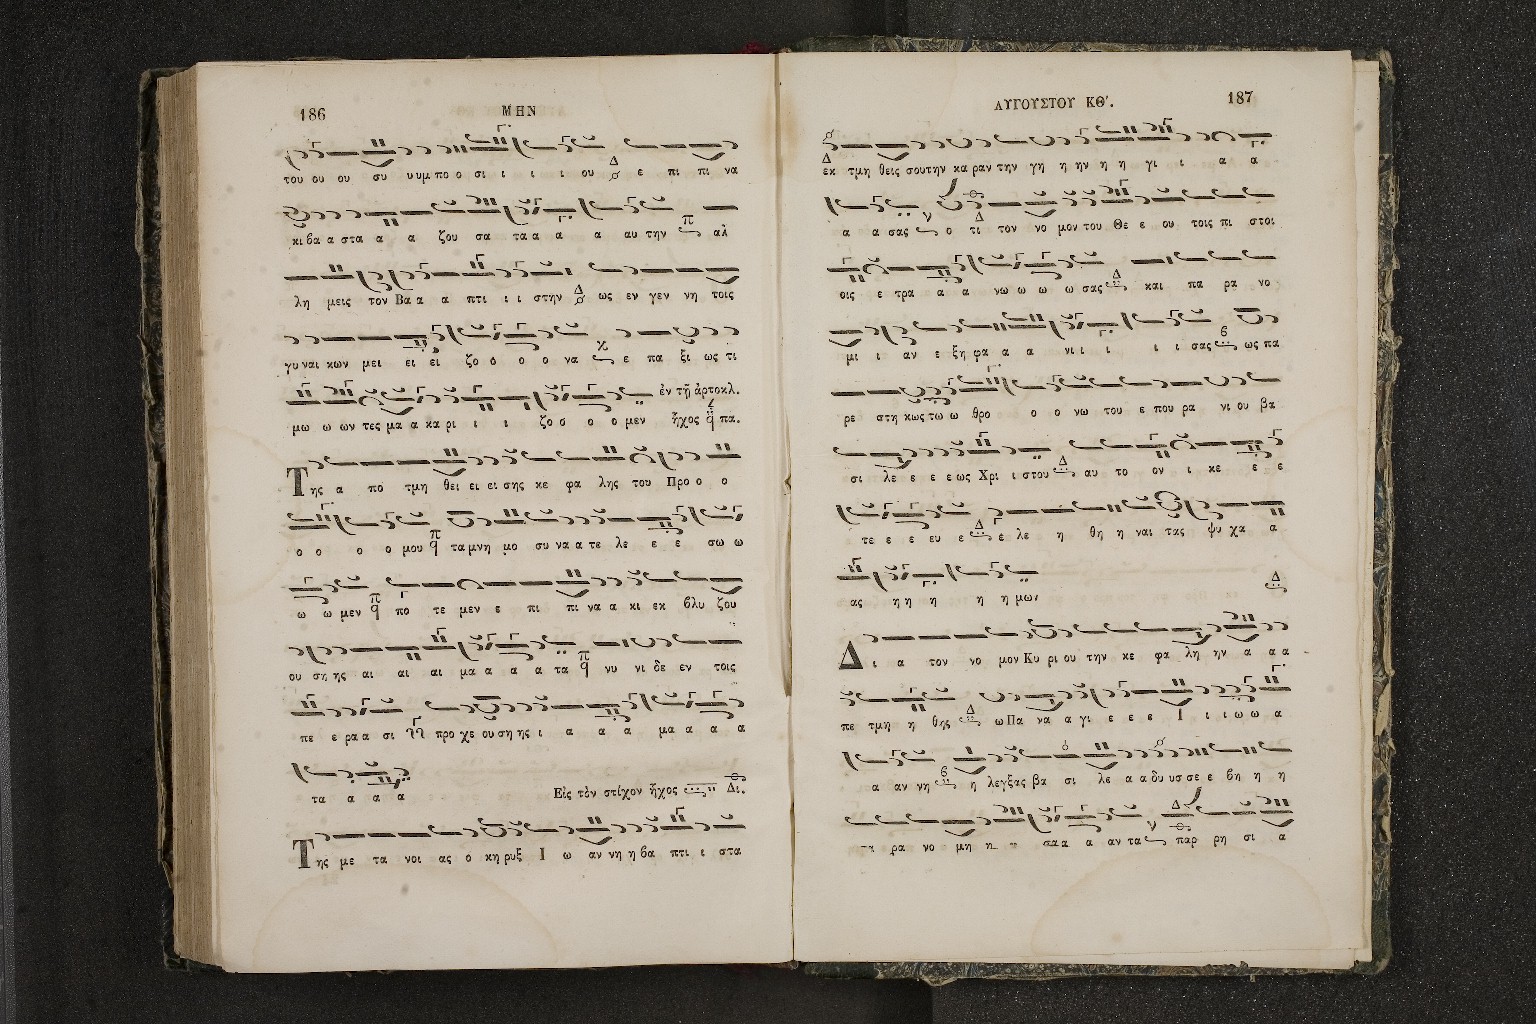 186
ΜΗΝ
του ου ου συ υυμ πο ο σι ι ι ι ου Δ ε πι πι να
κι βα α στα α α ζου σα τα α α α αυ την π αλ
λη μεις τον Βα α α πτι ι ι στην Δ ως εν γεν νη τοις
γυ ναι κων μει ει ει ζο ο ο ο να χ ε πα ξι ως τι
ἐν τῇ ἀρτοκλ.
μω ω ων τες μα α κα ρι ι ι ζο ο ο ο μεν ἦχος πα.
Της α πο τμη θει ει ει σης κε φα λης του Προ ο ο
ο ο ο ο μου π τα μνη μο συ να α τε λε ε ε σω ω
ω ω μεν π πο τε μεν ε πι πι να α κι εκ βλυ ζου
ου ση ης αι αι αι μα α α α τα π νυ νι δε εν τοις
πε ε ρα α σι προ χε ου ση ης ι α α α μα α α α
τα α α α
Εἰς τὸν στίχον ἦχος Δι.
Της με τα νοι ας ο κη ρυξ Ι ω αν νη η βα πτι ι στα
ΑΥΓΟΥΣΤΟΥ ΚΘ'.
187
Δ
εκ τμη θεις σου την κα ραν την γη η ην η η γι ι α α
α α σας ν ο τι τον νο μον του Θε ε ου τοις πι στοι
Δ
οις ε τρα α α νω ω ω ω σας Δ και πα ρα νο
μι ι αν ε ξη φα α α νι ι ι ι ι σας β ως πα
ρε στη κως τω ω θρο ο ο νω του ε που ρα νι ου βα
σι λε ε ε ε ως Χρι ι στου Δ αυ το ον ι κε ε ε
τε ε ε ευ ε Δ ε λε η θη η ναι τας ψυ χα α
ας η η η η η μω, Δ
Δι α τον νο μον Κυ ρι ου την κε φα λη ην α α α
πε τμη η θης Δ ω Πα να α γι ε ε ε Ι ι ι ω ω α
α αν νη β η λεγξας βα σι λε α α δυ υσ σε ε βη η η
ρα νο μη σα α α αν τα ν παρ ρη σι α
Δ